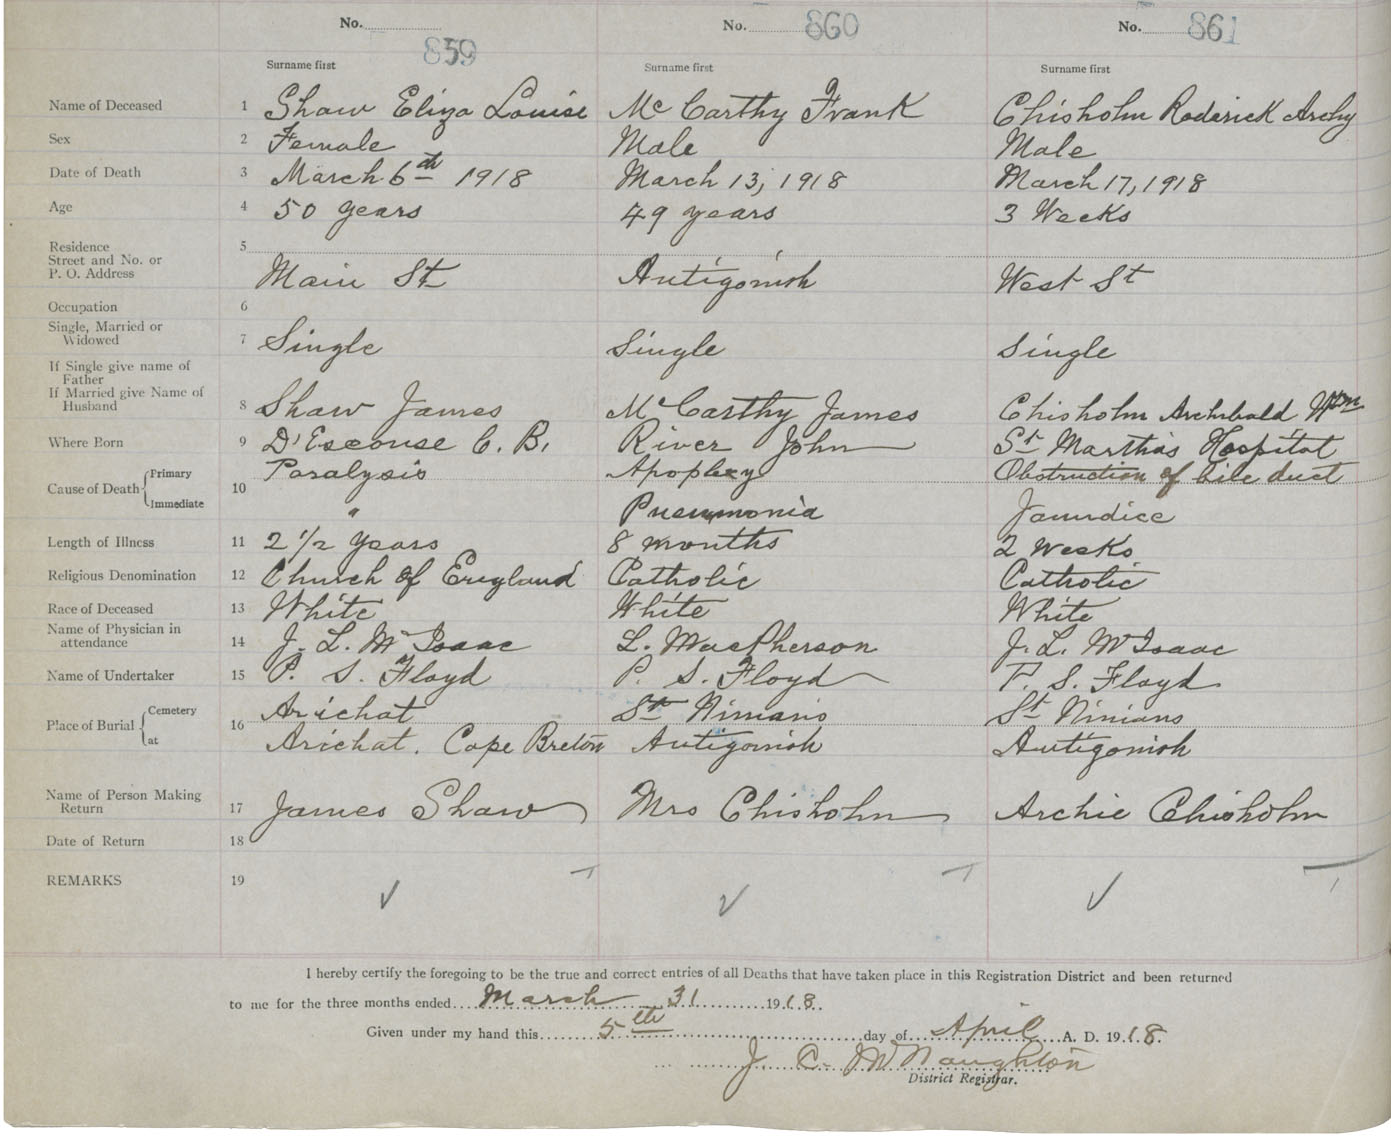 No. 859 No. 860 No. 861
Surname first Surname first Surname first
Name of Deceased 1 Shaw Eliza Louise Mc Carthy Frank Chisholm Roderick Archy
Sex 2 Female Male Male
Date of Death 3 March 6th 1918 March 13, 1918 March 17, 1918
Age 4 50 years 49 years 3 Weeks
Residence 5
Street and No. or
P. O. Address Main St. Antigonish West St
Occupation 6
Single, Married or
Widowed 7 Single Single Single
If Single give name of
Father
If Married give Name of
Husband 8 Shaw James McCarthy James Chisholm Archibald Wm
Where Born 9 D'Escouse C. B. River John St Marthas Hospital
Cause of Death Primary Paralysis Apoplexy Obstruction of bile duct
10
Immediate " Pneumonia Jaundice
Length of Illness 11 2 1/2 years 8 months 2 weeks
Religious Denomination 12 Church of England Catholic Catholic
Race of Deceased 13 White White White
Name of Physician in
attendance 14 J. L. McIsaac L. MacPherson J. L. McIsaac
Name of Undertaker 15 P. S. Floyd P. S. Floyd P. S. Floyd
Place of Burial Cemetery Arichat St Ninians St Ninians
16
at Arichat. Cape Breton Antigonish Antigonish
Name of Person Making
Return 17 James Shaw Mrs Chisholm Archie Chisholm
Date of Return 18
REMARKS 19
I hereby certify the foregoing to be the true and correct entries of all Deaths that have taken place in this Registration District and been returned
to me for the three months ended March 31 1918.
Given under my hand this 5th day of April A. D. 1918.
J. C. McNaughton
District Registrar.